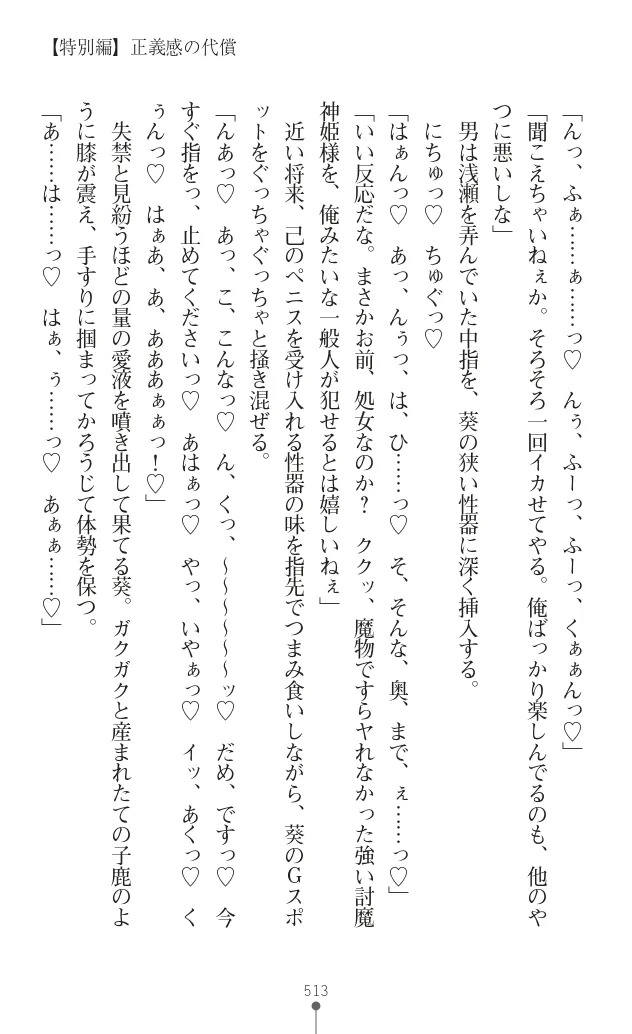 【特別編】正義感の代償
「んっ、ふぁ……ぁ……っ♡　んぅ、ふーっ、ふーっ、くぁぁんっ♡」
「聞こえちゃいねぇか。そろそろ一回イカせてやる。俺ばっかり楽しんでるのも、他のや
つに悪いしな」
　男は浅瀬を弄んでいた中指を、葵の狭い性器に深く挿入する。
　にちゅっ♡　ちゅぐっ♡
「はぁんっ♡　あっ、んぅっ、は、ひ……っ♡　そ、そんな、奥、まで、ぇ……っ♡」
「いい反応だな。まさかお前、処女なのか？　ククッ、魔物ですらヤれなかった強い討魔
神姫様を、俺みたいな一般人が犯せるとは嬉しいねぇ」
　近い将来、己のペニスを受け入れる性器の味を指先でつまみ食いしながら、葵のＧスポ
ットをぐっちゃぐっちゃと掻き混ぜる。
「んあっ♡　あっ、こ、こんなっ♡　ん、くっ、～～～～～～ッ♡　だめ、ですっ♡　今
すぐ指をっ、止めてくださいっ♡　あはぁっ♡　やっ、いやぁっ♡　イッ、あくっ♡　く
ぅんっ♡　はぁあ、あ、あああぁぁっ！♡」
　失禁と見紛うほどの量の愛液を噴き出して果てる葵。ガクガクと産まれたての子鹿のよ
うに膝が震え、手すりに掴まってかろうじて体勢を保つ。
「あ……は……っ♡　はぁ、ぅ……っ♡　あぁぁ……♡」
513